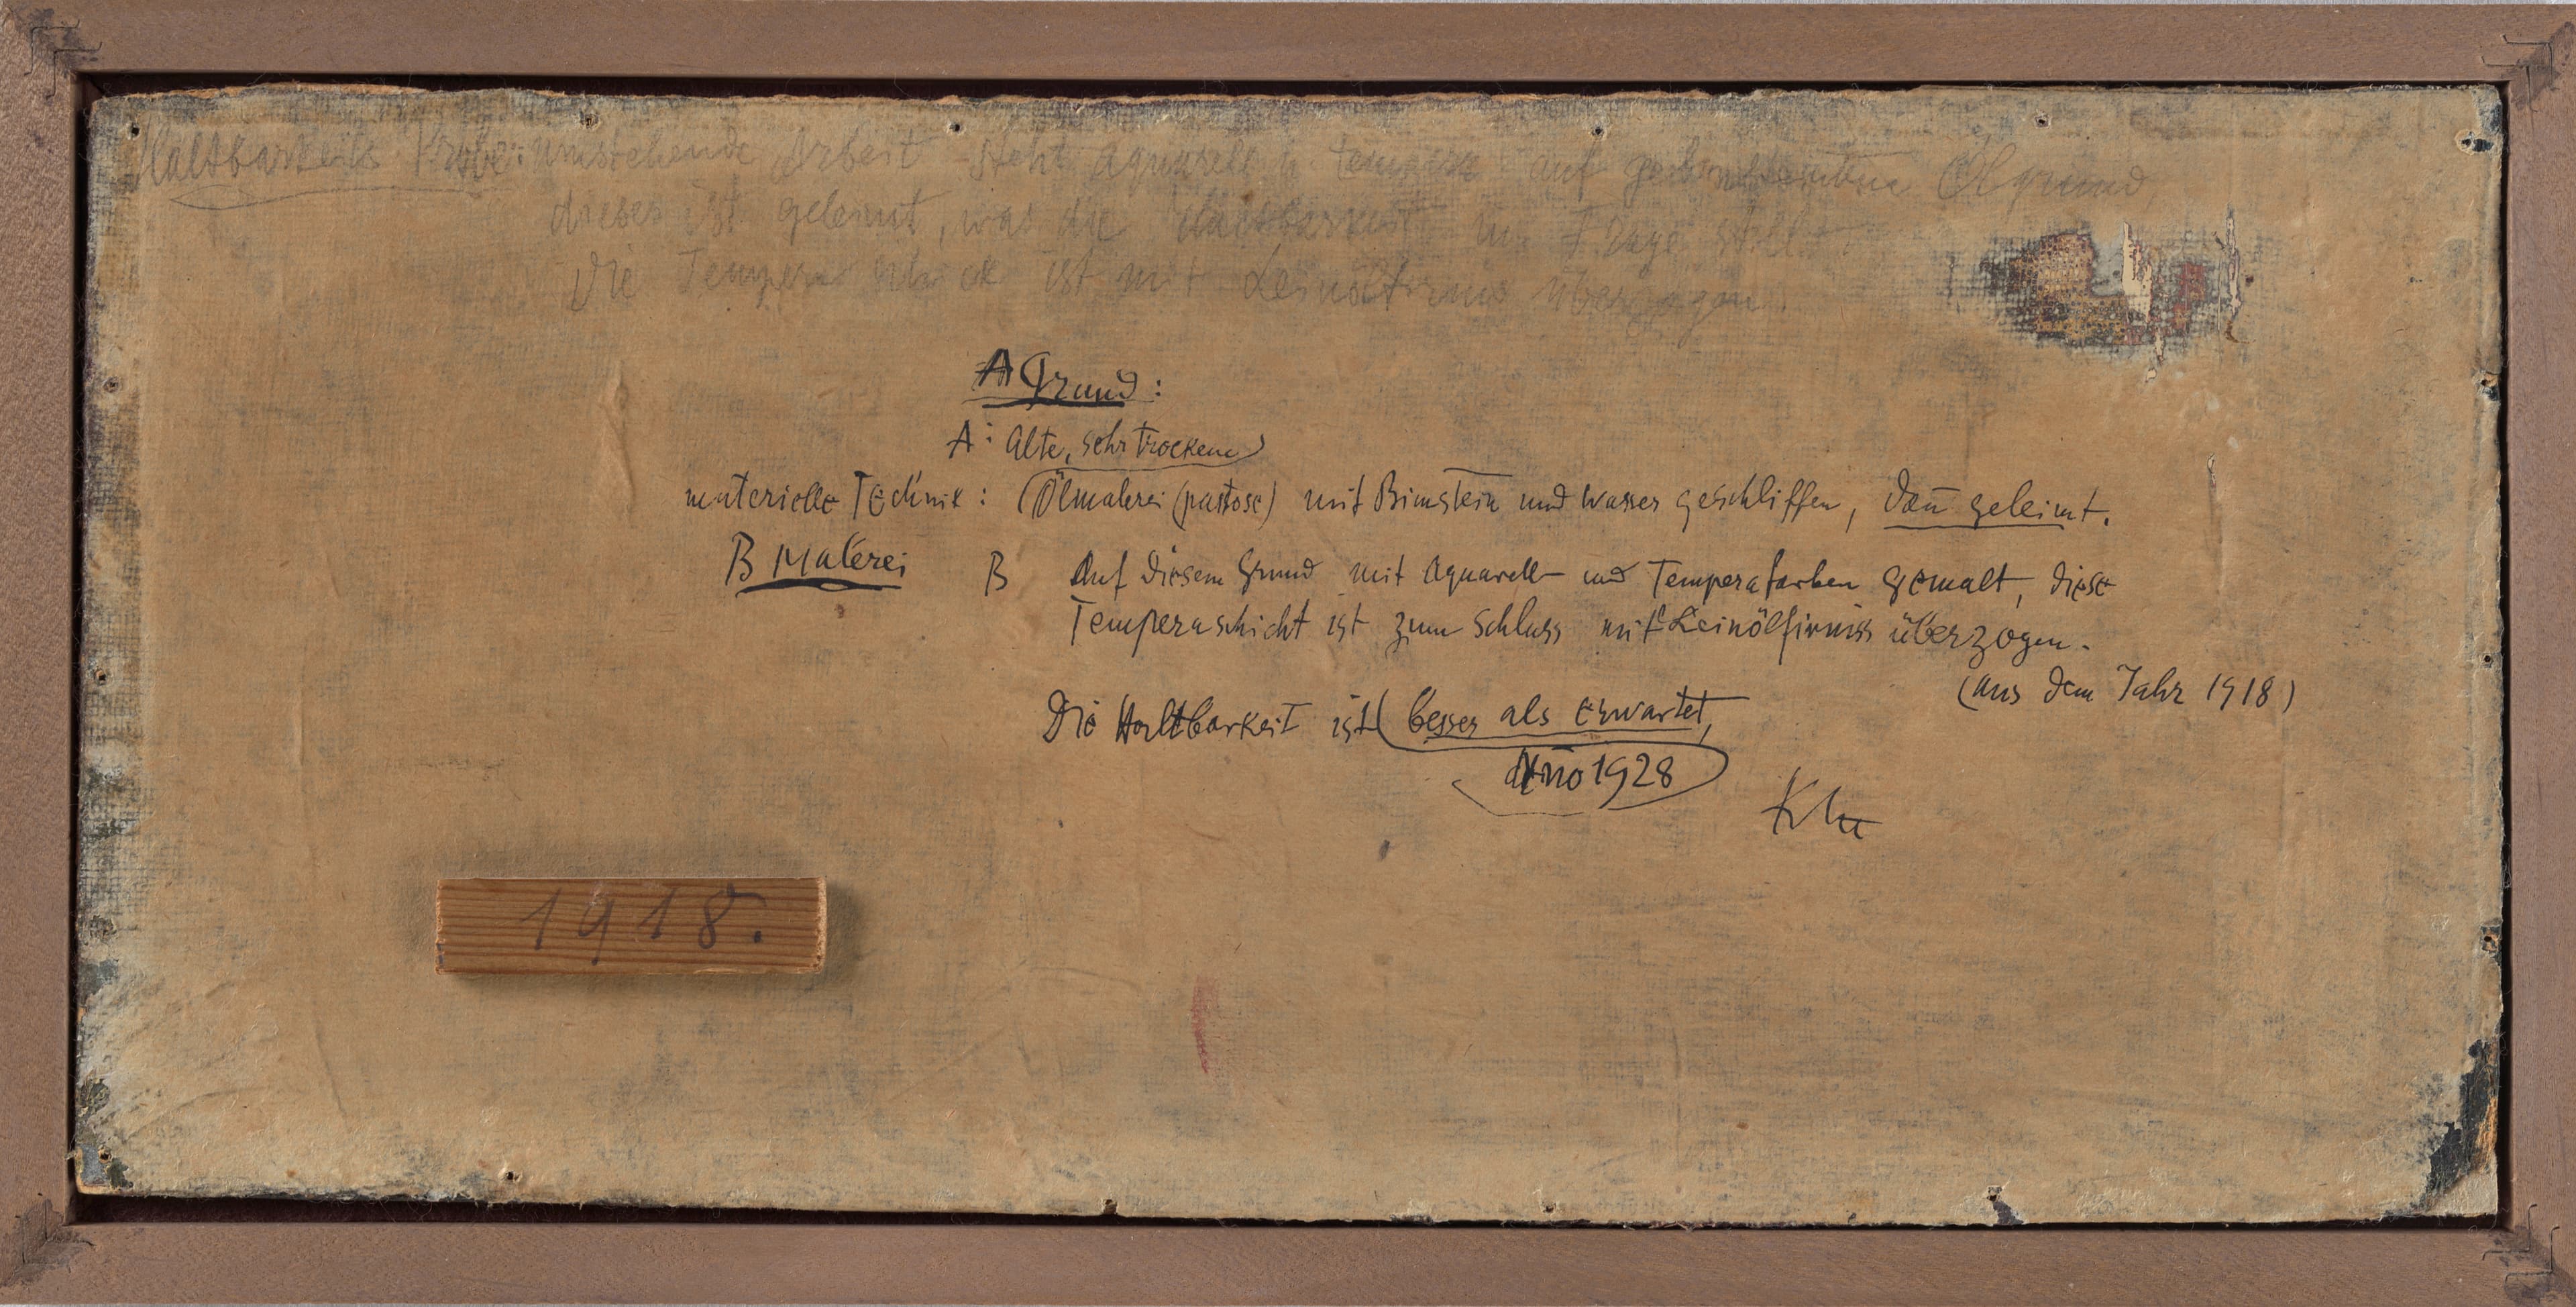 Haltbarkeits Probe: umstehende Arbeit steht aquarell u tempera auf gebimsentem Ölgrund,
dieser ist geleimt, was die Haltbarkeit in Frage stellt.
Die Tempera schick ist mit Leinölfirnis überzogen.
A Grund:
A: alte, sehr trockene
materielle Technik: Ölmalerei (pastose) mit Bimstein und Wasser geschliffen, dan̄ geleimt.
B Malerei B Auf diesem Grund mit Aquarell- und Temperafarben gemalt, diese
Temperaschicht ist zum Schluss mit Leinölfirniss überzogen.
(aus dem Jahr 1918)
Die Haltbarkeit ist besser als erwartet,
an̄o 1928
Klee
1918.